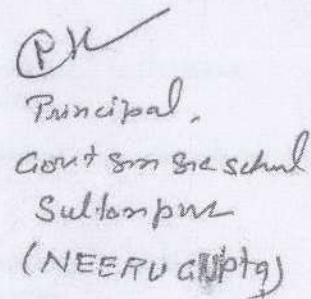 Principal,
Govt Sm Sec school
Sultanpur
(NEERU GUPta)